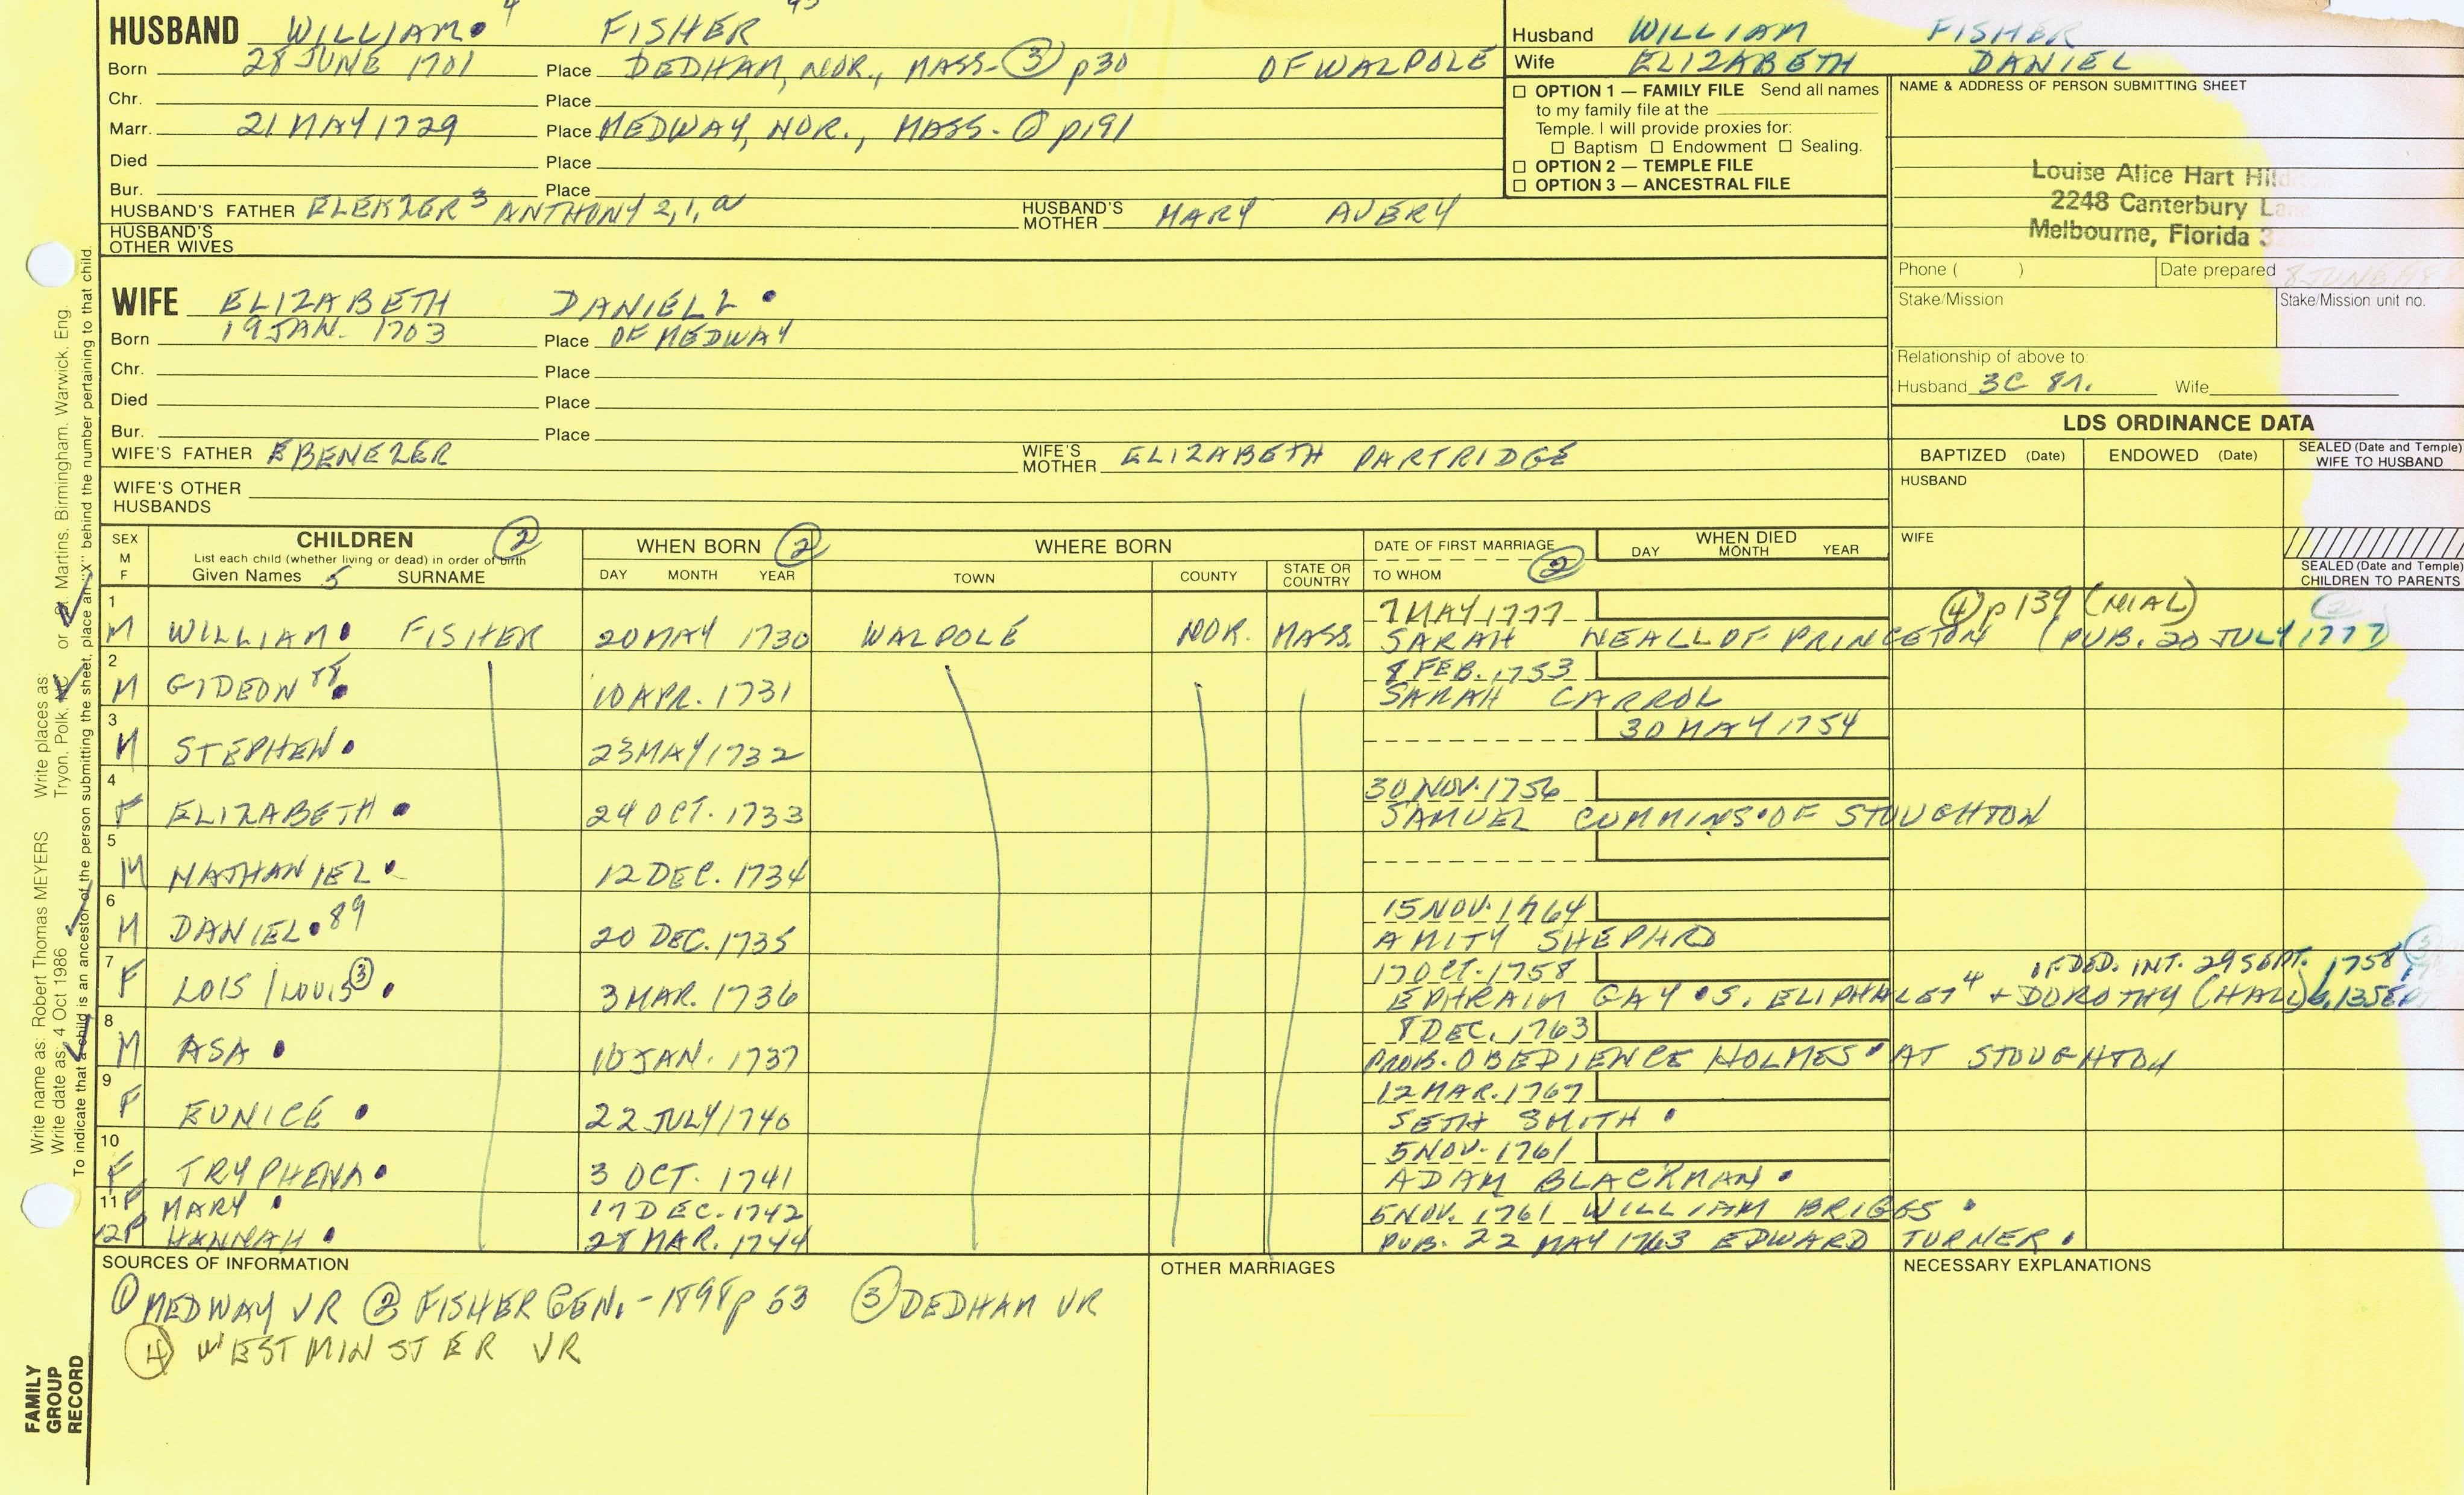 HUSBAND WILLIAM 4 FISHER 45
Born 28 JUNE 1701 Place DEDHAM, NOR., MASS- ③ p30 OF WALPOLE
Chr. Place
Marr. 21 MAY 1729 Place MEDWAY, NOR., MASS- ① p191
Died Place
Bur. Place
HUSBAND'S FATHER ELEKZER 3 ANTHONY 2,1,a HUSBAND'S MOTHER MARY AVERY
HUSBAND'S OTHER WIVES
Husband WILLIAM FISHER
Wife ELIZABETH DANIEL
☐ OPTION 1 — FAMILY FILE Send all names
to my family file at the
Temple. I will provide proxies for:
☐ Baptism ☐ Endowment ☐ Sealing.
☐ OPTION 2 — TEMPLE FILE
☐ OPTION 3 — ANCESTRAL FILE
NAME & ADDRESS OF PERSON SUBMITTING SHEET
Louise Alice Hart
2248 Canterbury
Melbourne, Florida 3
Phone ( ) Date prepared
Stake/Mission Stake/Mission unit no.
Relationship of above to:
Husband 3C 8r. Wife
WIFE ELIZABETH DANIELL
Born 19 JAN. 1703 Place OF MEDWAY
Chr. Place
Died Place
Bur. Place
WIFE'S FATHER EBENEZER WIFE'S MOTHER ELIZABETH PARTRIDGE
WIFE'S OTHER HUSBANDS
LDS ORDINANCE DATA
BAPTIZED (Date) ENDOWED (Date) SEALED (Date and Temple) WIFE TO HUSBAND
HUSBAND
WIFE
SEALED (Date and Temple) CHILDREN TO PARENTS
SEX M F CHILDREN ② WHEN BORN ② WHERE BORN DATE OF FIRST MARRIAGE WHEN DIED
List each child (whether living or dead) in order of birth
Given Names 5 SURNAME DAY MONTH YEAR TOWN COUNTY STATE OR COUNTRY TO WHOM ② DAY MONTH YEAR
1 7 MAY 1777 ④ p 139 (NIAL)
M WILLIAM FISHER 20 MAY 1730 WALPOLE NOR. MASS. SARAH NEALL OF PRINCETON (PUB. 20 JULY 1777)
2 8 FEB. 1753
M GIDEON 88 10 APR. 1731 SARAH CARROL
3 30 MAY 1754
M STEPHEN 23 MAY 1732
4 30 NOV. 1756
F ELIZABETH 24 OCT. 1733 SAMUEL CUMMINS OF STOUGHTON
5
M NATHANIEL 12 DEC. 1734
6 15 NOV. 1764
M DANIEL 89 20 DEC. 1735 AMITY SHEPHRD
7 17 OCT. 1758 DED. INT. 29 SEPT. 1758
F LOIS / LOUIS ③ 3 MAR. 1736 EPHRAIM GAY S. ELIPHALET 4 + DOROTHY (HALL) b. 13 SEP
8 8 DEC. 1763
M ASA 10 JAN. 1737 PROB. OBEDIENCE HOLMES AT STOUGHTON
9 12 MAR. 1767
F EUNICE 22 JULY 1740 SETH SMITH
10 5 NOV. 1761
F TRYPHENA 3 OCT. 1741 ADAM BLACKMAN
11 F MARY 17 DEC. 1742 5 NOV. 1761 WILLIAM BRIGGS
12 F HANNAH 28 MAR. 1744 PUB. 22 MAY 1763 EDWARD TURNER
SOURCES OF INFORMATION
① MEDWAY VR ② FISHER GEN. - 1898 p 53 ③ DEDHAM VR
④ WESTMINSTER VR
OTHER MARRIAGES
NECESSARY EXPLANATIONS
Write name as: Robert Thomas MEYERS Write places as: Tryon, Polk, NC or St. Martins, Birmingham, Warwick, Eng.
Write date as: 4 Oct 1986
To indicate that a child is an ancestor of the person submitting the sheet, place an "X" behind the number pertaining to that child.
FAMILY
GROUP
RECORD